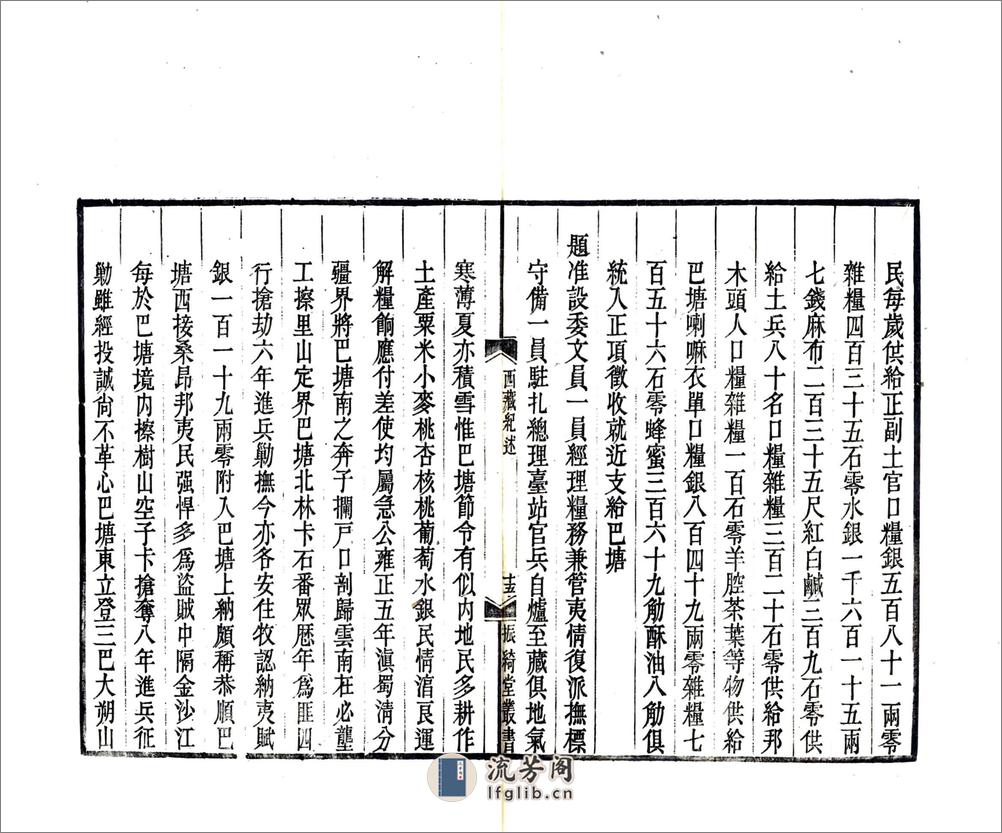 民每歲供給正副土官口糧銀五百八十一兩零
雜糧四百三十五石零水銀一千六百一十五兩
七錢麻布二百三十五尺紅白鹹三百九石零供
給土兵八十名口糧雜糧三百二十石零供給邦
木頭人口糧雜糧一百石零羊腔茶葉等物供給
巴塘喇嘛衣單口糧銀八百四十九兩零雜糧七
百五十六石零蜂蜜三百六十九觔酥油八觔俱
統入正項徵收就近支給巴塘
題准設委文員一員經理糧務兼管夷情復派撫標
守備一員駐扎總理臺站官兵自爐至藏俱地氣
西藏紀述
振綺堂叢書
寒薄夏亦積雪惟巴塘節令有似內地民多耕作
土產粟米小麥桃杏核桃葡萄水銀民情淳良運
解糧餉應付差使均屬急公雍正五年滇蜀清分
疆界將巴塘南之奔子攔戸口剖歸雲南在必壟
工擦里山定界巴塘北林卡石番眾歷年爲匪四
行搶劫六年進兵勦撫今亦各安住牧認納夷賦
銀一百一十九兩零附入巴塘上納頗稱恭順巴
塘西接桑昂邦夷民强悍多爲盜賊中隔金沙江
每於巴塘境內檫樹山空子卡搶奪八年進兵征
勦雖經投誠尙不革心巴塘東立登三巴大朔山
流芳阁
lfglib.cn